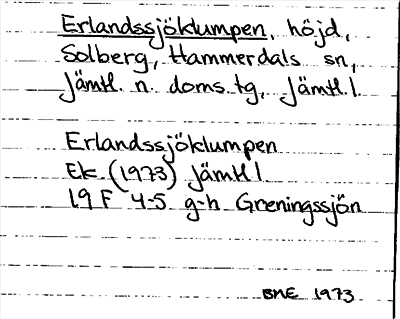 Erlandssjöklumpen, höjd,
Solberg, Hammerdals sn,
Jämtl. n. doms.tg, Jämtl.l.
Erlandssjöklumpen
Ek. (1973) Jämtl l
19 F 4-5 g-h Greningssjön
BME 1973